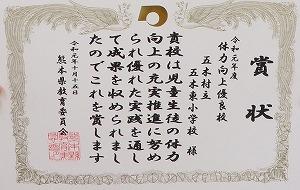 賞状
令和元年度
体力向上優良校
五木村立
五木東小学校 様
貴校は児童生徒の体力
向上の充実推進に努め
られ優れた実践を通し
て成果を収められまし
たのでこれを賞します
令和元年十月十五日
熊本県教育委員会